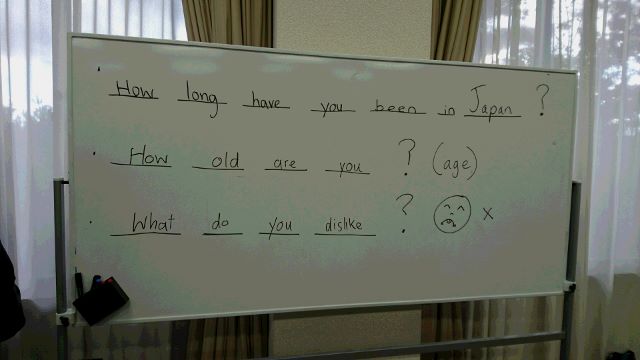 How long have you been in Japan ?
How old are you ? (age)
What do you dislike ? x